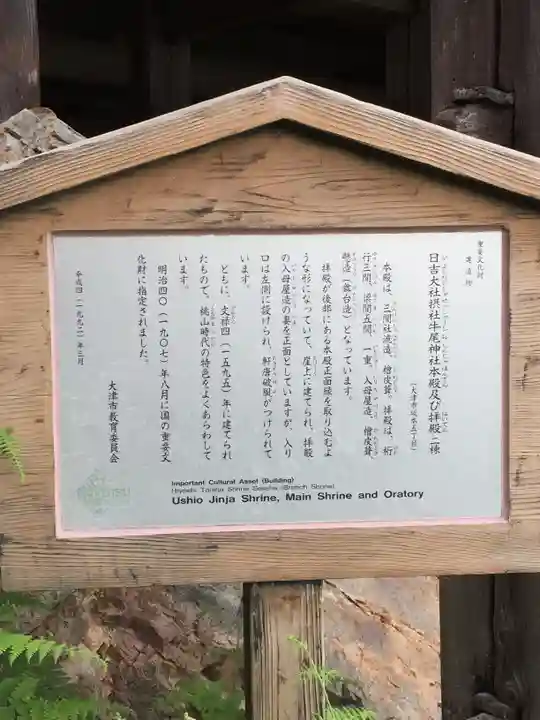 重要文化財
建造物
日吉大社摂社牛尾神社本殿及び拝殿 二棟
(大津市坂本五丁目)
本殿は、三間社流造、檜皮葺。拝殿は、桁
行三間、梁間五間、一重、入母屋造、檜皮葺、
懸造(舞台造)となっています。
拝殿が後部にある本殿正面縁を取り込むよ
うな形になっていて、崖上に建てられ、拝殿
の入母屋造の妻を正面としていますが、入り
口は左側に設けられ、軒唐破風がつけられて
います。
ともに、文禄四(一五九五)年に建てられ
たもので、桃山時代の特色をよくあらわして
います。
明治四〇(一九〇七)年八月に国の重要文
化財に指定されました。
平成四(一九九二)年三月
大津市教育委員会
Important Cultural Asset (Building)
Hiyoshi Taisha Shrine Sessha (Branch Shrine)
Ushio Jinja Shrine, Main Shrine and Oratory